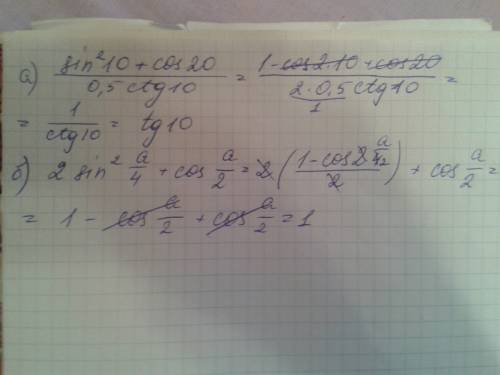 а) (sin²10 + cos20)/(0,5 ctg10) = (1 - cos2·10 + cos20)/(2·0,5 ctg10) =
1
= 1/ctg10 = tg10
б) 2 sin² a/4 + cos a/2 = 2 ((1 - cos2 a/4₂)/2) + cos a/2 =
= 1 - cos a/2 + cos a/2 = 1